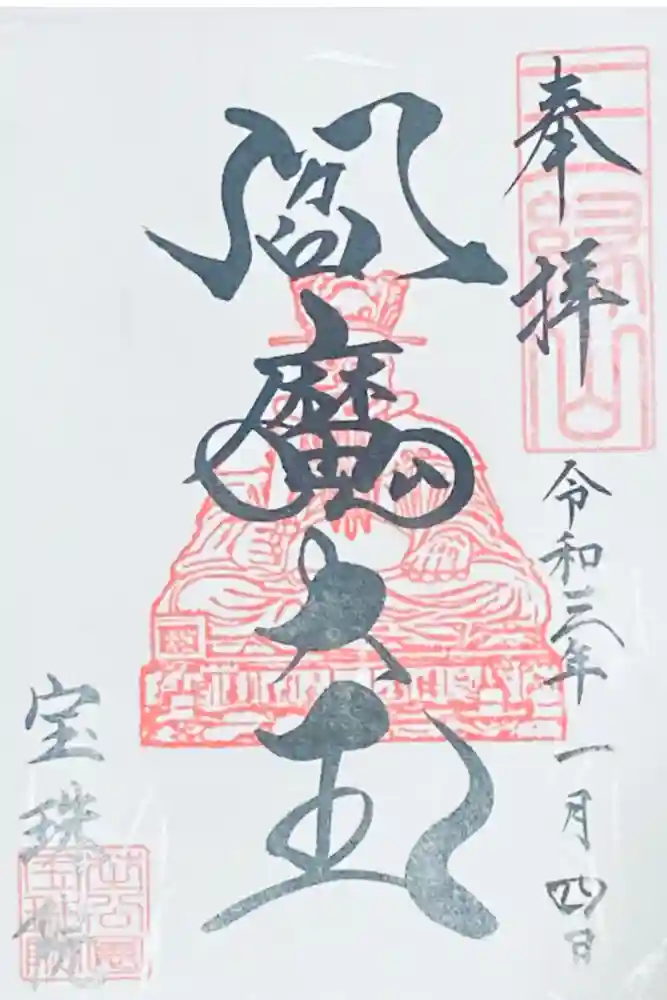 奉拝
令和三年一月四日
閻魔大王
宝珠